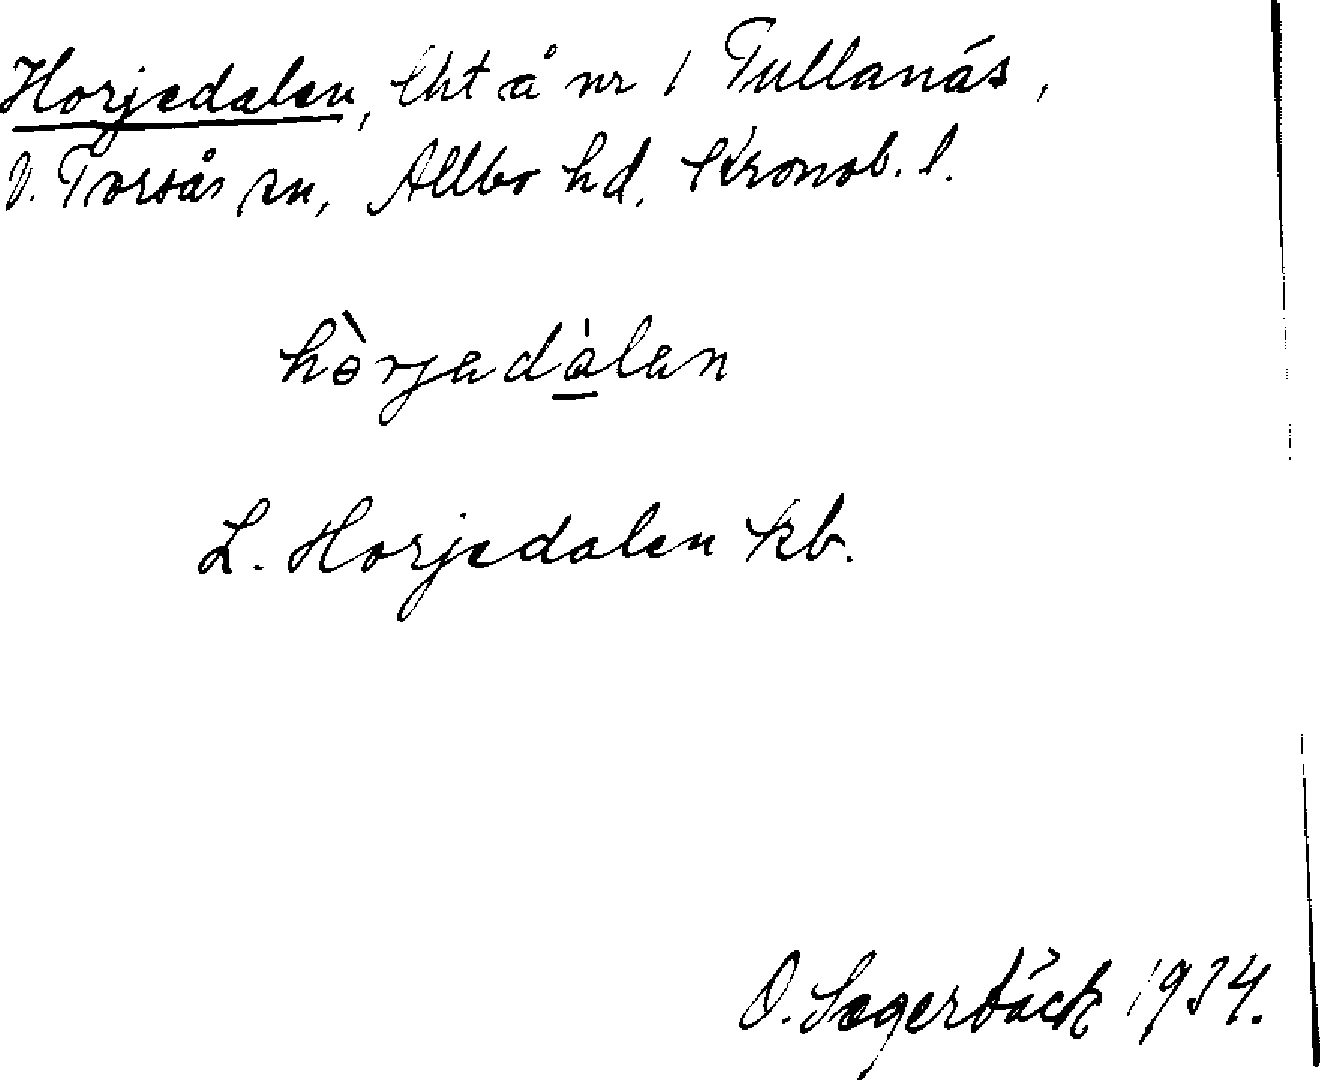 Horjedalen, lht å nr 1 Tullanäs,
V. Torsås sn, Allbo hd, Kronob. l.
hòrjedàlen
L. Horjedalen kb.
O. Sagerbäck 1934.